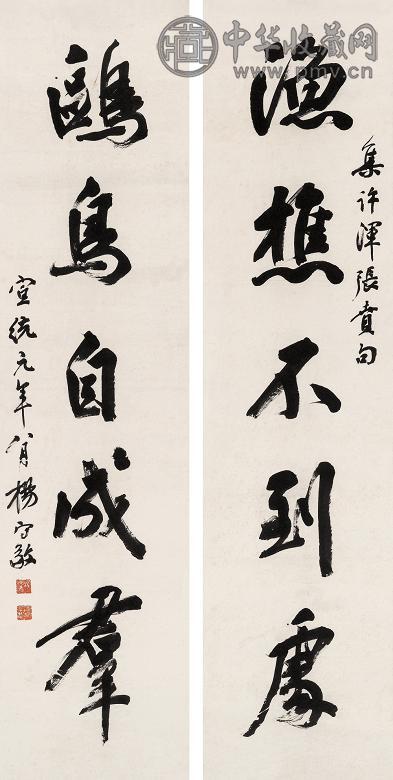 中华收藏网
www.pmv.cn
集許渾張賁句
漁樵不到處
鷗鳥自成羣
宣統元年八月楊守敬